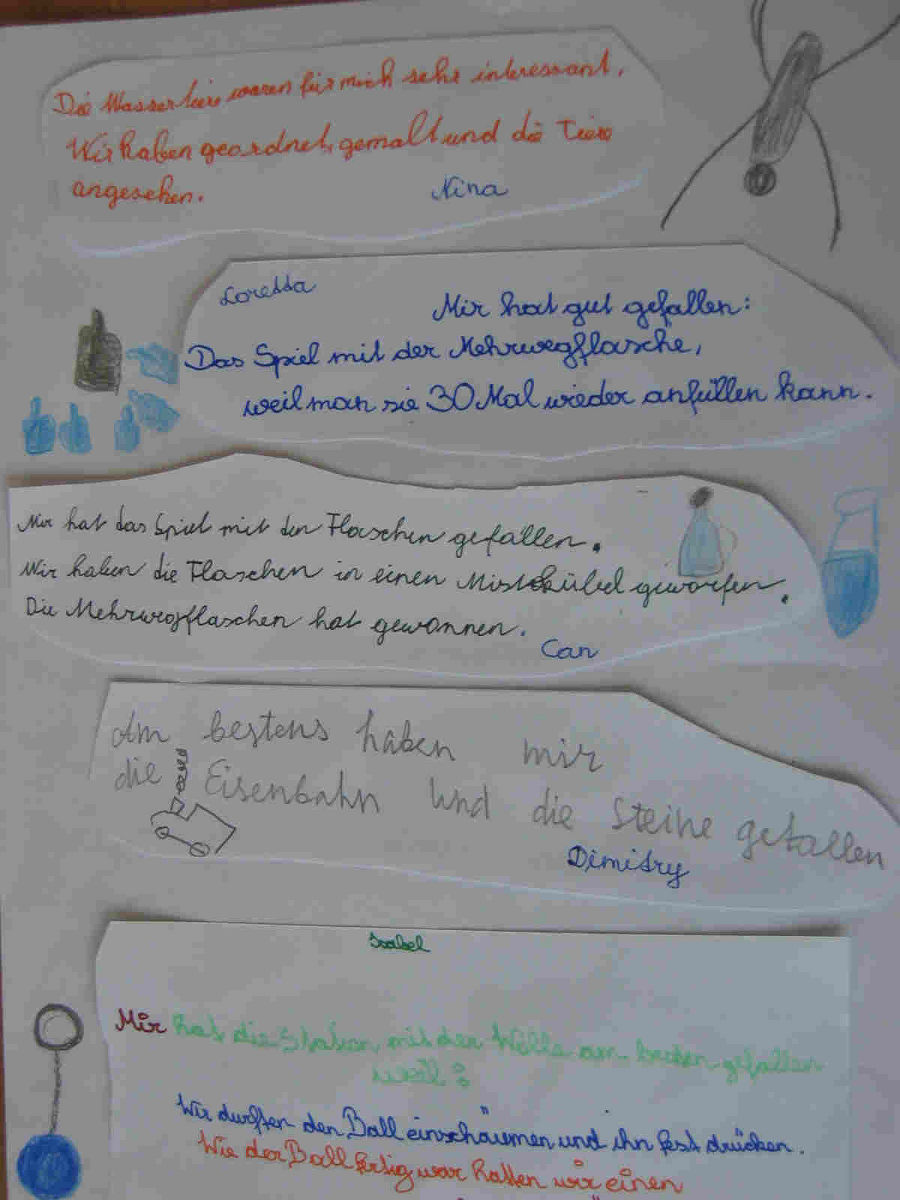 Die Wassertiere waren für mich sehr interessant.
Wir haben geordnet, gemalt und die Tiere
angesehen.
Nina
Loretta
Mir hat gut gefallen:
Das Spiel mit der Mehrwegflasche,
weil man sie 30 Mal wieder anfüllen kann.
Mir hat das Spiel mit den Flaschen gefallen.
Wir haben die Flaschen in einen Mistkübel geworfen.
Die Mehrwegflaschen hat gewonnen.
Can
Am bestens haben mir
die Eisenbahn und die Steine gefallen
Dimitry
Isabel
Mir hat die Station mit der Wolle am besten gefallen
weil:
Wir durften den Ball einschäumen und ihn fest drücken.
Wie der Ball fertig war hatten wir einen